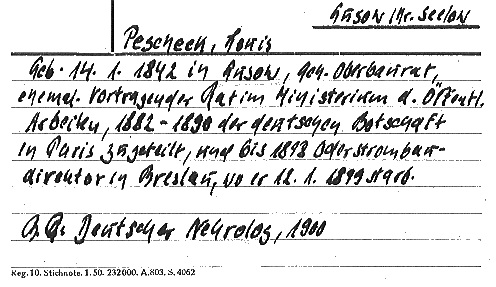 Gusow Kr. Seelow
Pescheck, Louis
Geb. 14. 1. 1842 in Gusow, Geh. Oberbaurat,
ehemal. Vortragender Rat im Ministerium d. Öffentl.
Arbeiten, 1882-1890 der deutschen Botschaft
in Paris zugeteilt, und bis 1898 Oderstrombau-
direktor in Breslau, wo er 12. 1. 1899 starb.
Deutscher Nekrolog, 1900
Reg. 10. Stichnote. 1. 50. 232000. A. 803. S. 4062